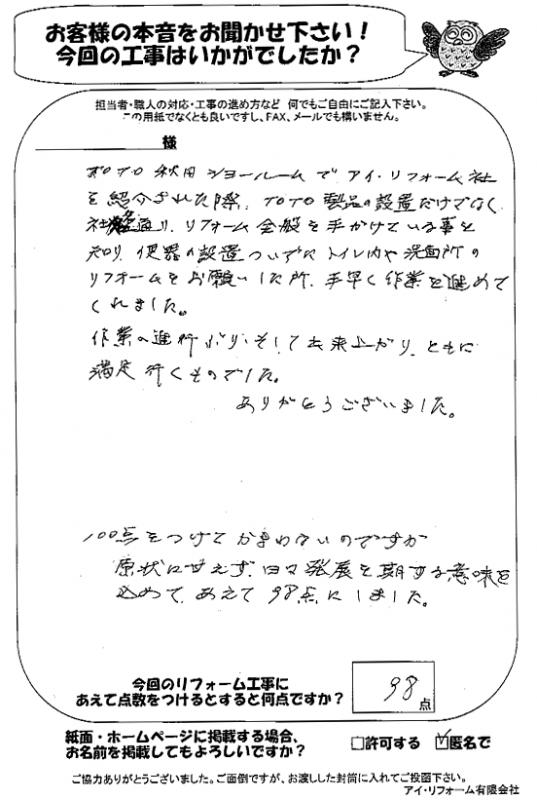 お客様の本音をお聞かせ下さい！
今回の工事はいかがでしたか？
担当者・職人の対応・工事の進め方など 何でもご自由にご記入下さい。
この用紙でなくとも良いですし、FAX、メールでも構いません。
様
TOTO 秋田 ショールームで アイ・リフォーム社
を紹介された際、TOTO 製品の設置だけでなく
社名通り、リフォーム全般を手がけている事を
知り、便器の設置ついでにトイレ内や洗面所の
リフォームをお願いした所、手早く作業を進めて
くれました。
作業の進行ぶり、そして出来上がり、ともに
満足行くものでした。
ありがとうございました。
100点をつけてかまわないのですが
原状に甘えず、日々発展を期する意味を
込めて、あえて98点にしました。
今回のリフォーム工事に
あえて点数をつけるとすると何点ですか？
98点
紙面・ホームページに掲載する場合、
お名前を掲載してもよろしいですか？
□許可する ☑匿名で
ご協力ありがとうございました。ご面倒ですが、お渡しした封筒に入れてご投函下さい。
アイ・リフォーム有限会社